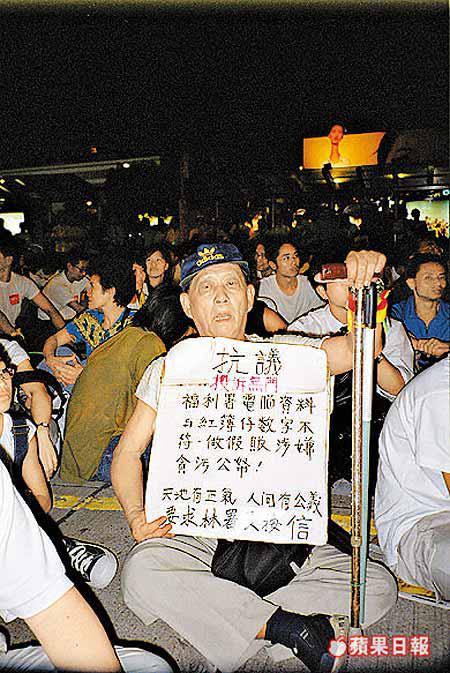 adidas
抗議
投訴無門
福利署電腦資料
与紅簿仔数字不
符．做假賬涉嫌
貪污公帑！
天地有正氣 人间有公義
要求林署
信
蘋果日報